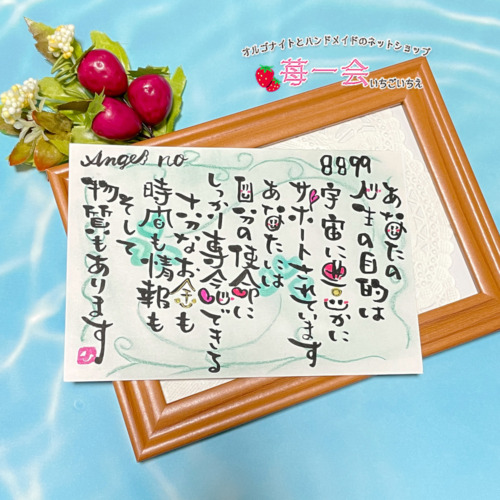 オルゴナイトとハンドメイドのネットショップ
苺一会
いちごいちえ
Angel no
8899
あなたの
人生の目的は
宇宙に豊かに
サポートされています
あなたには
自分の使命に
しっかり専念できる
十分なお金も
時間も情報も
そして
物質もあります